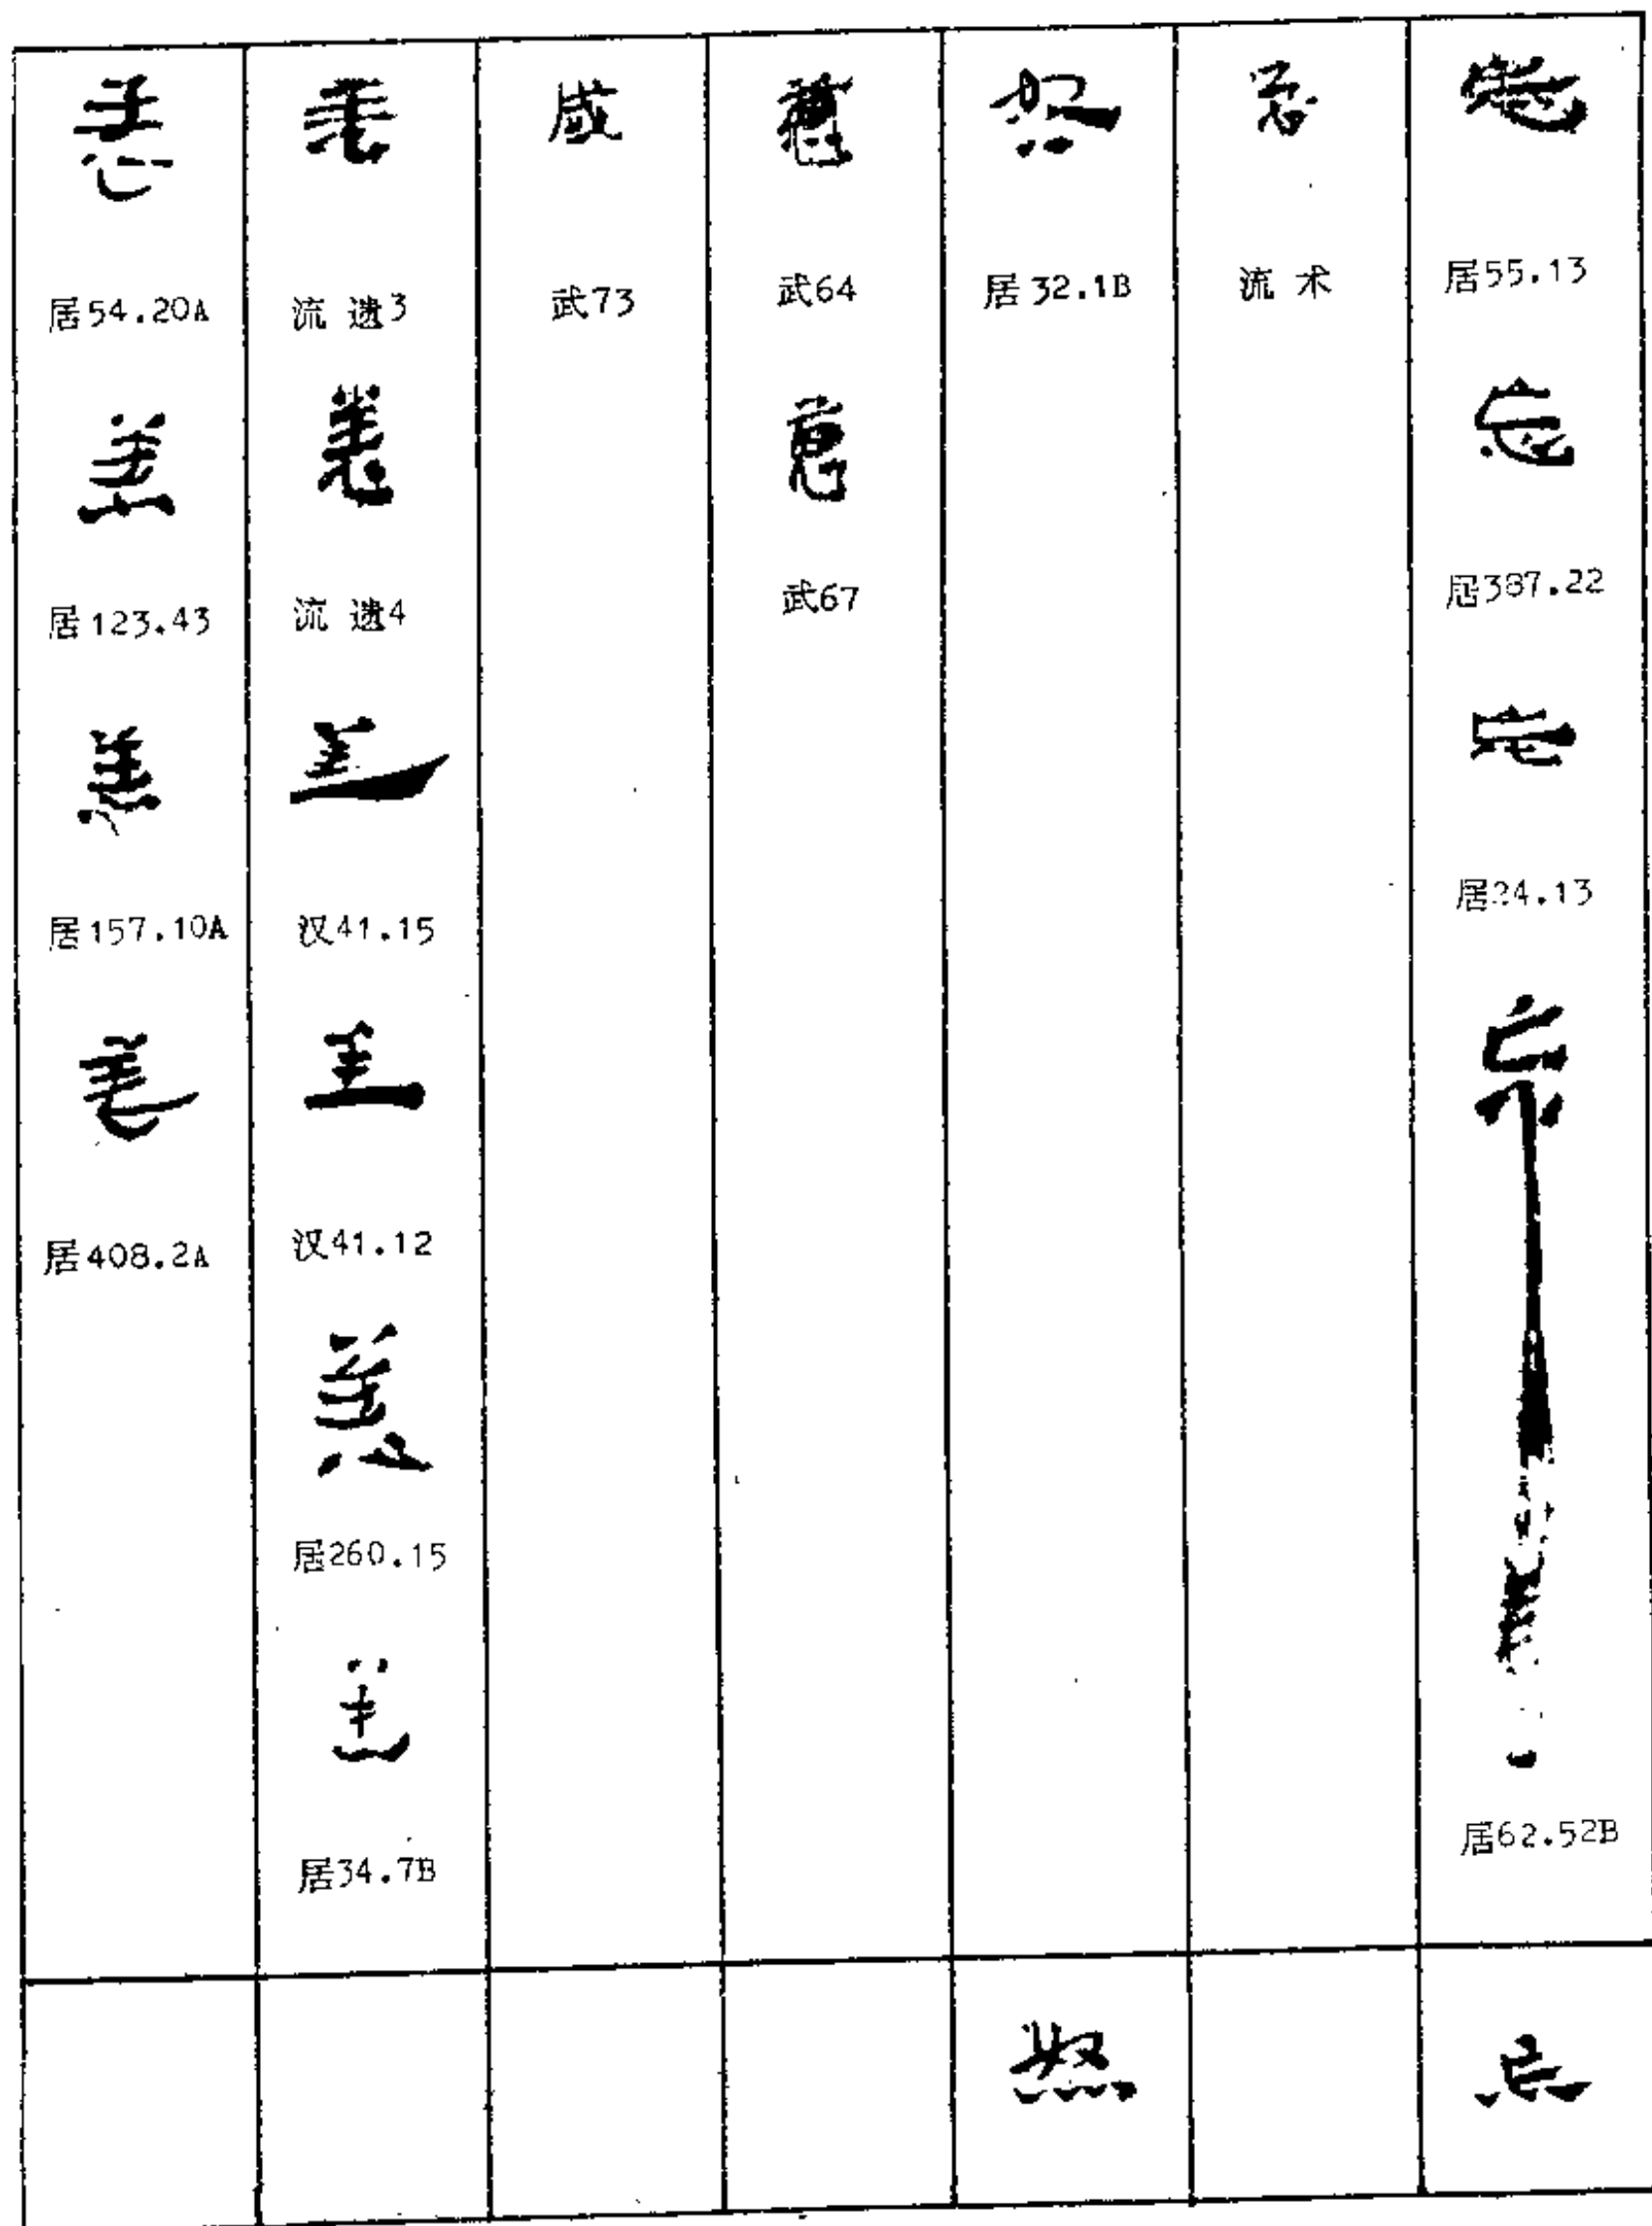 忘
居55.13
忘
居387.22
忘
居24.13
忘
居62.52B
忘
忽
流 术
怒
居32.1B
怒
武64
武67
感
武73
恙
流 遗3
恙
流 遗4
恙
汉41.15
恙
汉41.12
恙
居260.15
恙
居34.7B
恙
居54.20A
恙
居123.43
恙
居157.10A
恙
居408.2A